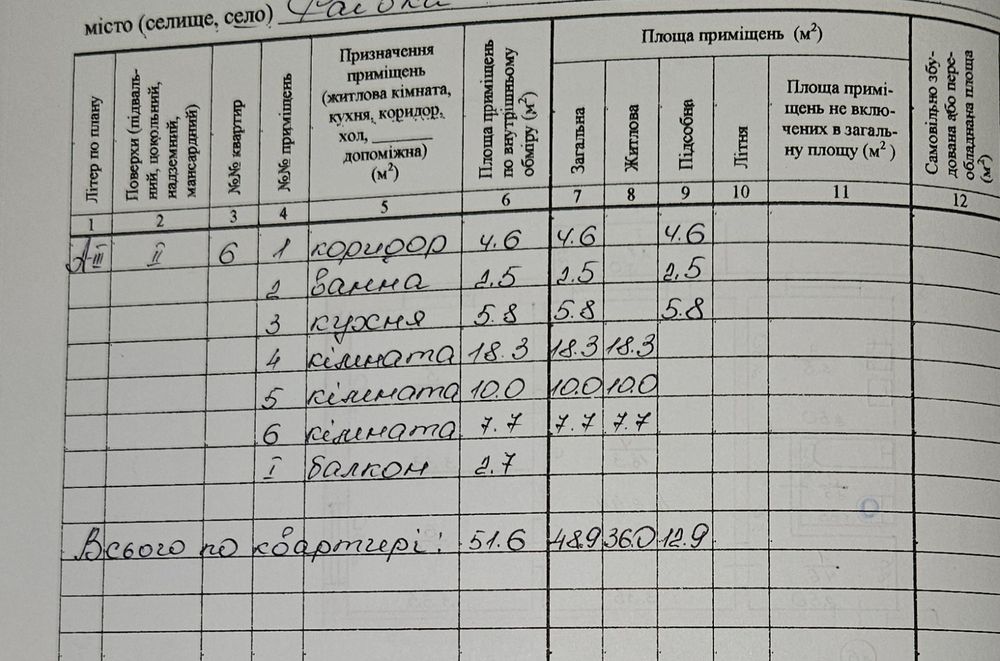 місто (селище, село)
Літер по плану
Поверхи (підваль-
ний, цокольний,
надземний,
мансардний)
№№ квартир
№№ приміщень
Призначення
приміщень
(житлова кімната,
кухня, коридор,
хол, ________
допоміжна)
(м²)
Площа приміщень
по внутрішньому
обміру (м²)
Площа приміщень (м²)
Загальна
Житлова
Підсобна
Літня
Площа примі-
щень не вклю-
чених в загаль-
ну площу (м²)
Самовільно збу-
дована або пере-
обладнана площа
(м²)
1 2 3 4 5 6 7 8 9 10 11 12
А-III II 6 1 коридор 4.6 4.6 4.6
2 ванна 2.5 2.5 2.5
3 кухня 5.8 5.8 5.8
4 кімната 18.3 18.3 18.3
5 кімната 10.0 10.0 10.0
6 кімната 7.7 7.7 7.7
I балкон 2.7
Всього по квартирі: 51.6 48.9 36.0 12.9